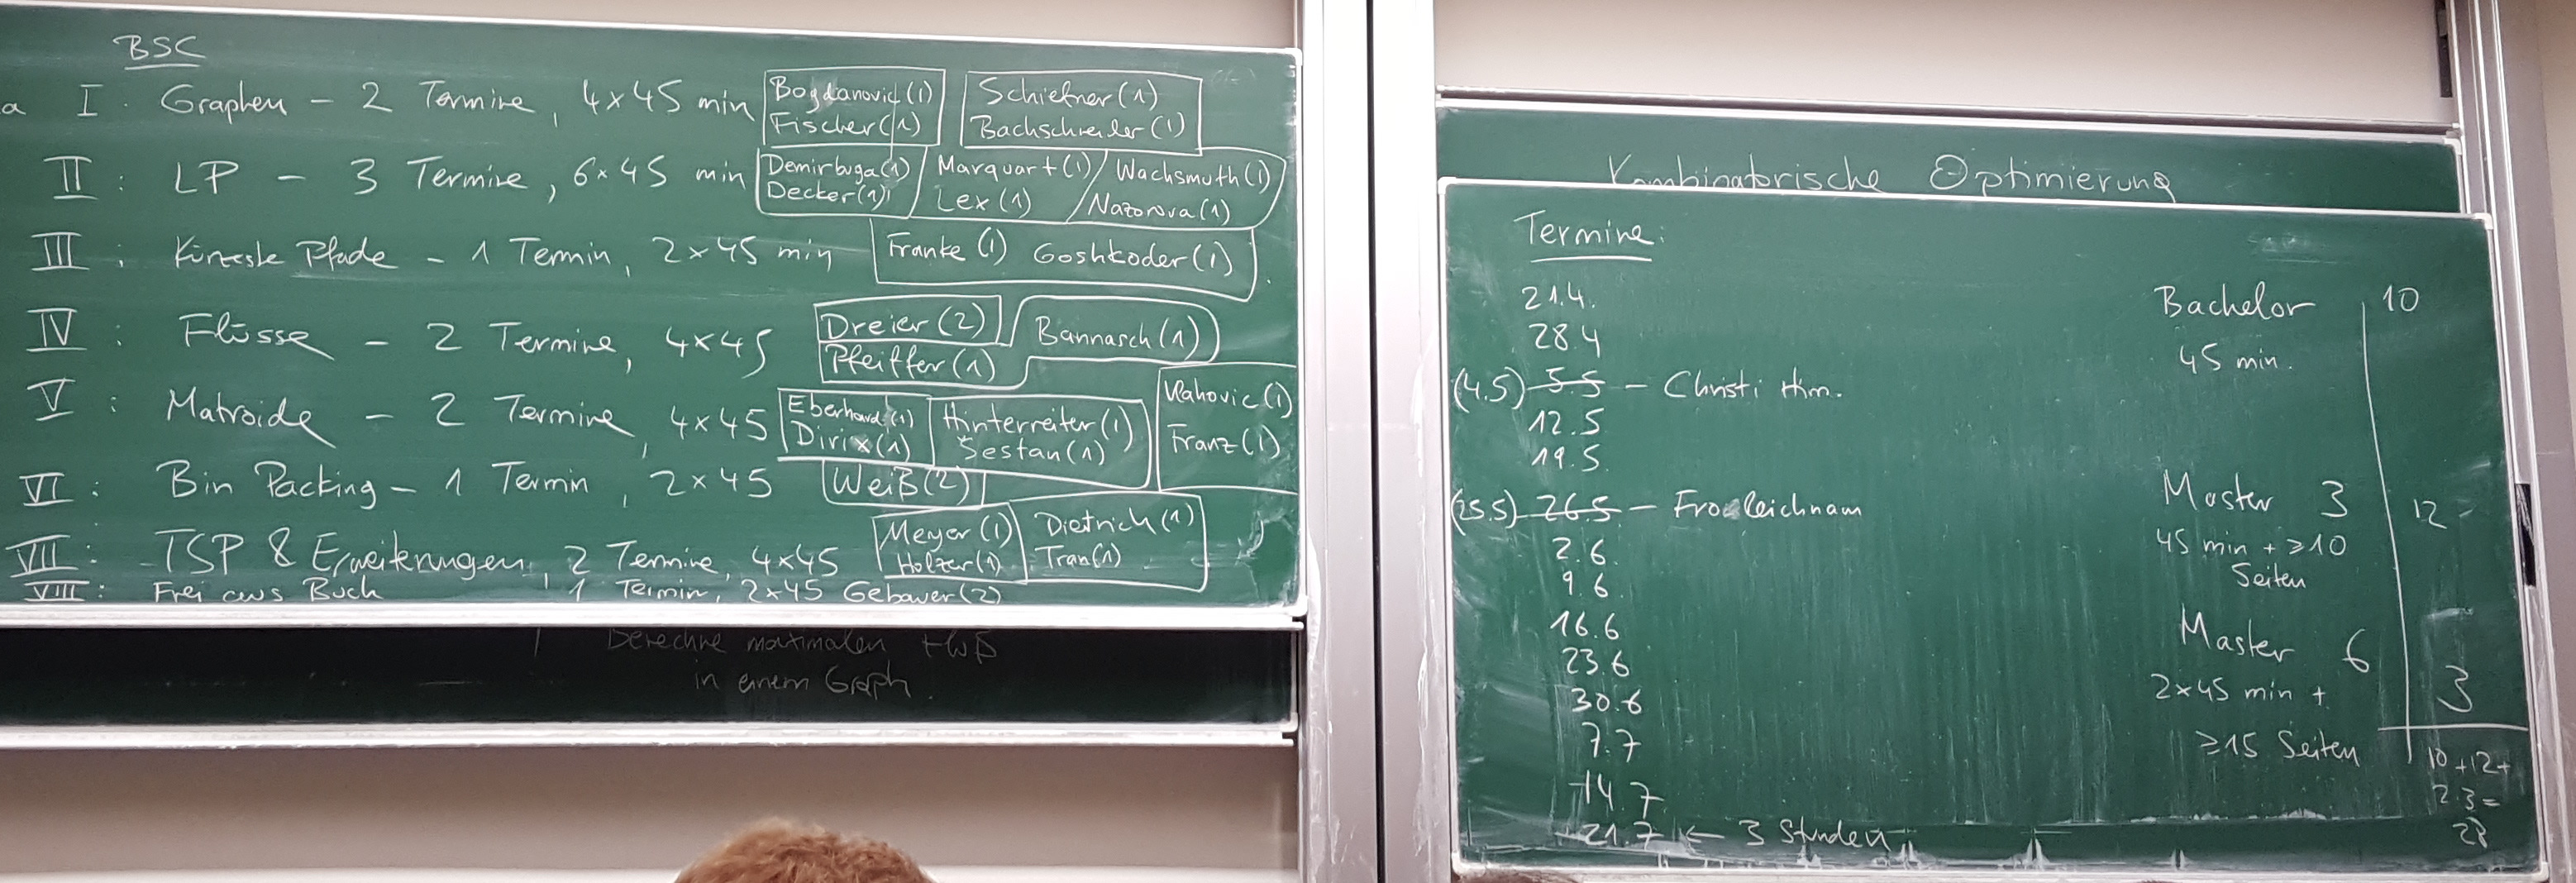 BSC
a I. Graphen - 2 Termine, 4x45 min Bogdanovic(1) Schiefner(1)
Fischer(1) Bachschneider(1)
II: LP - 3 Termine, 6x45 min Demirbuga(1) Marquart(1) Wachsmuth(1)
Decker(1) Lex(1) Nazorova(1)
III: Kürzeste Pfade - 1 Termin, 2x45 min Franke(1) Goshkoder(1)
IV: Flüsse - 2 Termine, 4x45 Dreier(2) Bannasch(1)
Pfeiffer(1)
V: Matroide - 2 Termine, 4x45 Eberhard(1) Hinterreiter(1) Vlahovic(1)
Dirix(1) Šestan(1) Franz(1)
VI: Bin Packing - 1 Termin, 2x45 Weiß(2)
VII: TSP & Erweiterungen, 2 Termine, 4x45 Meyer(1) Dietrich(1)
Holzer(1) Tran(1)
VIII: Frei aus Buch 1 Termin, 2x45 Gebauer(2)
Berechne maximalen Fluß
in einem Graph.
Kombinatorische Optimierung
Termine:
21.4.
28.4
(4.5) 5.5 - Christi Him.
12.5
19.5.
(25.5) 26.5 - Fronleichnam
2.6.
9.6.
16.6
23.6
30.6
7.7
14.7
21.7 ← 3 Stunden
Bachelor 10
45 min.
Master 3 12
45 min + ≥10
Seiten
Master 6 3
2x45 min +
≥15 Seiten
10+12+
2.3=
28